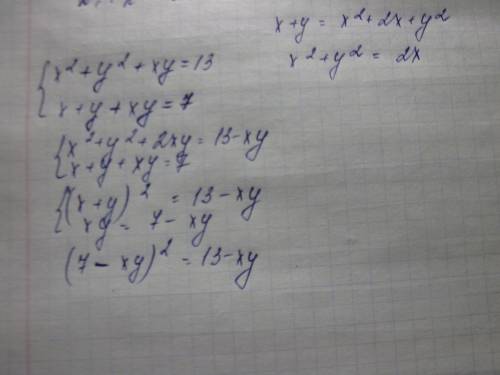 x+y = x²+2x+y²
x²+y² = 2x
{x²+y²+xy=13
x+y+xy=7
{x²+y²+2xy=13-xy
x+y+xy=7
{(x+y)² = 13-xy
xy = 7-xy
(7-xy)² = 13-xy